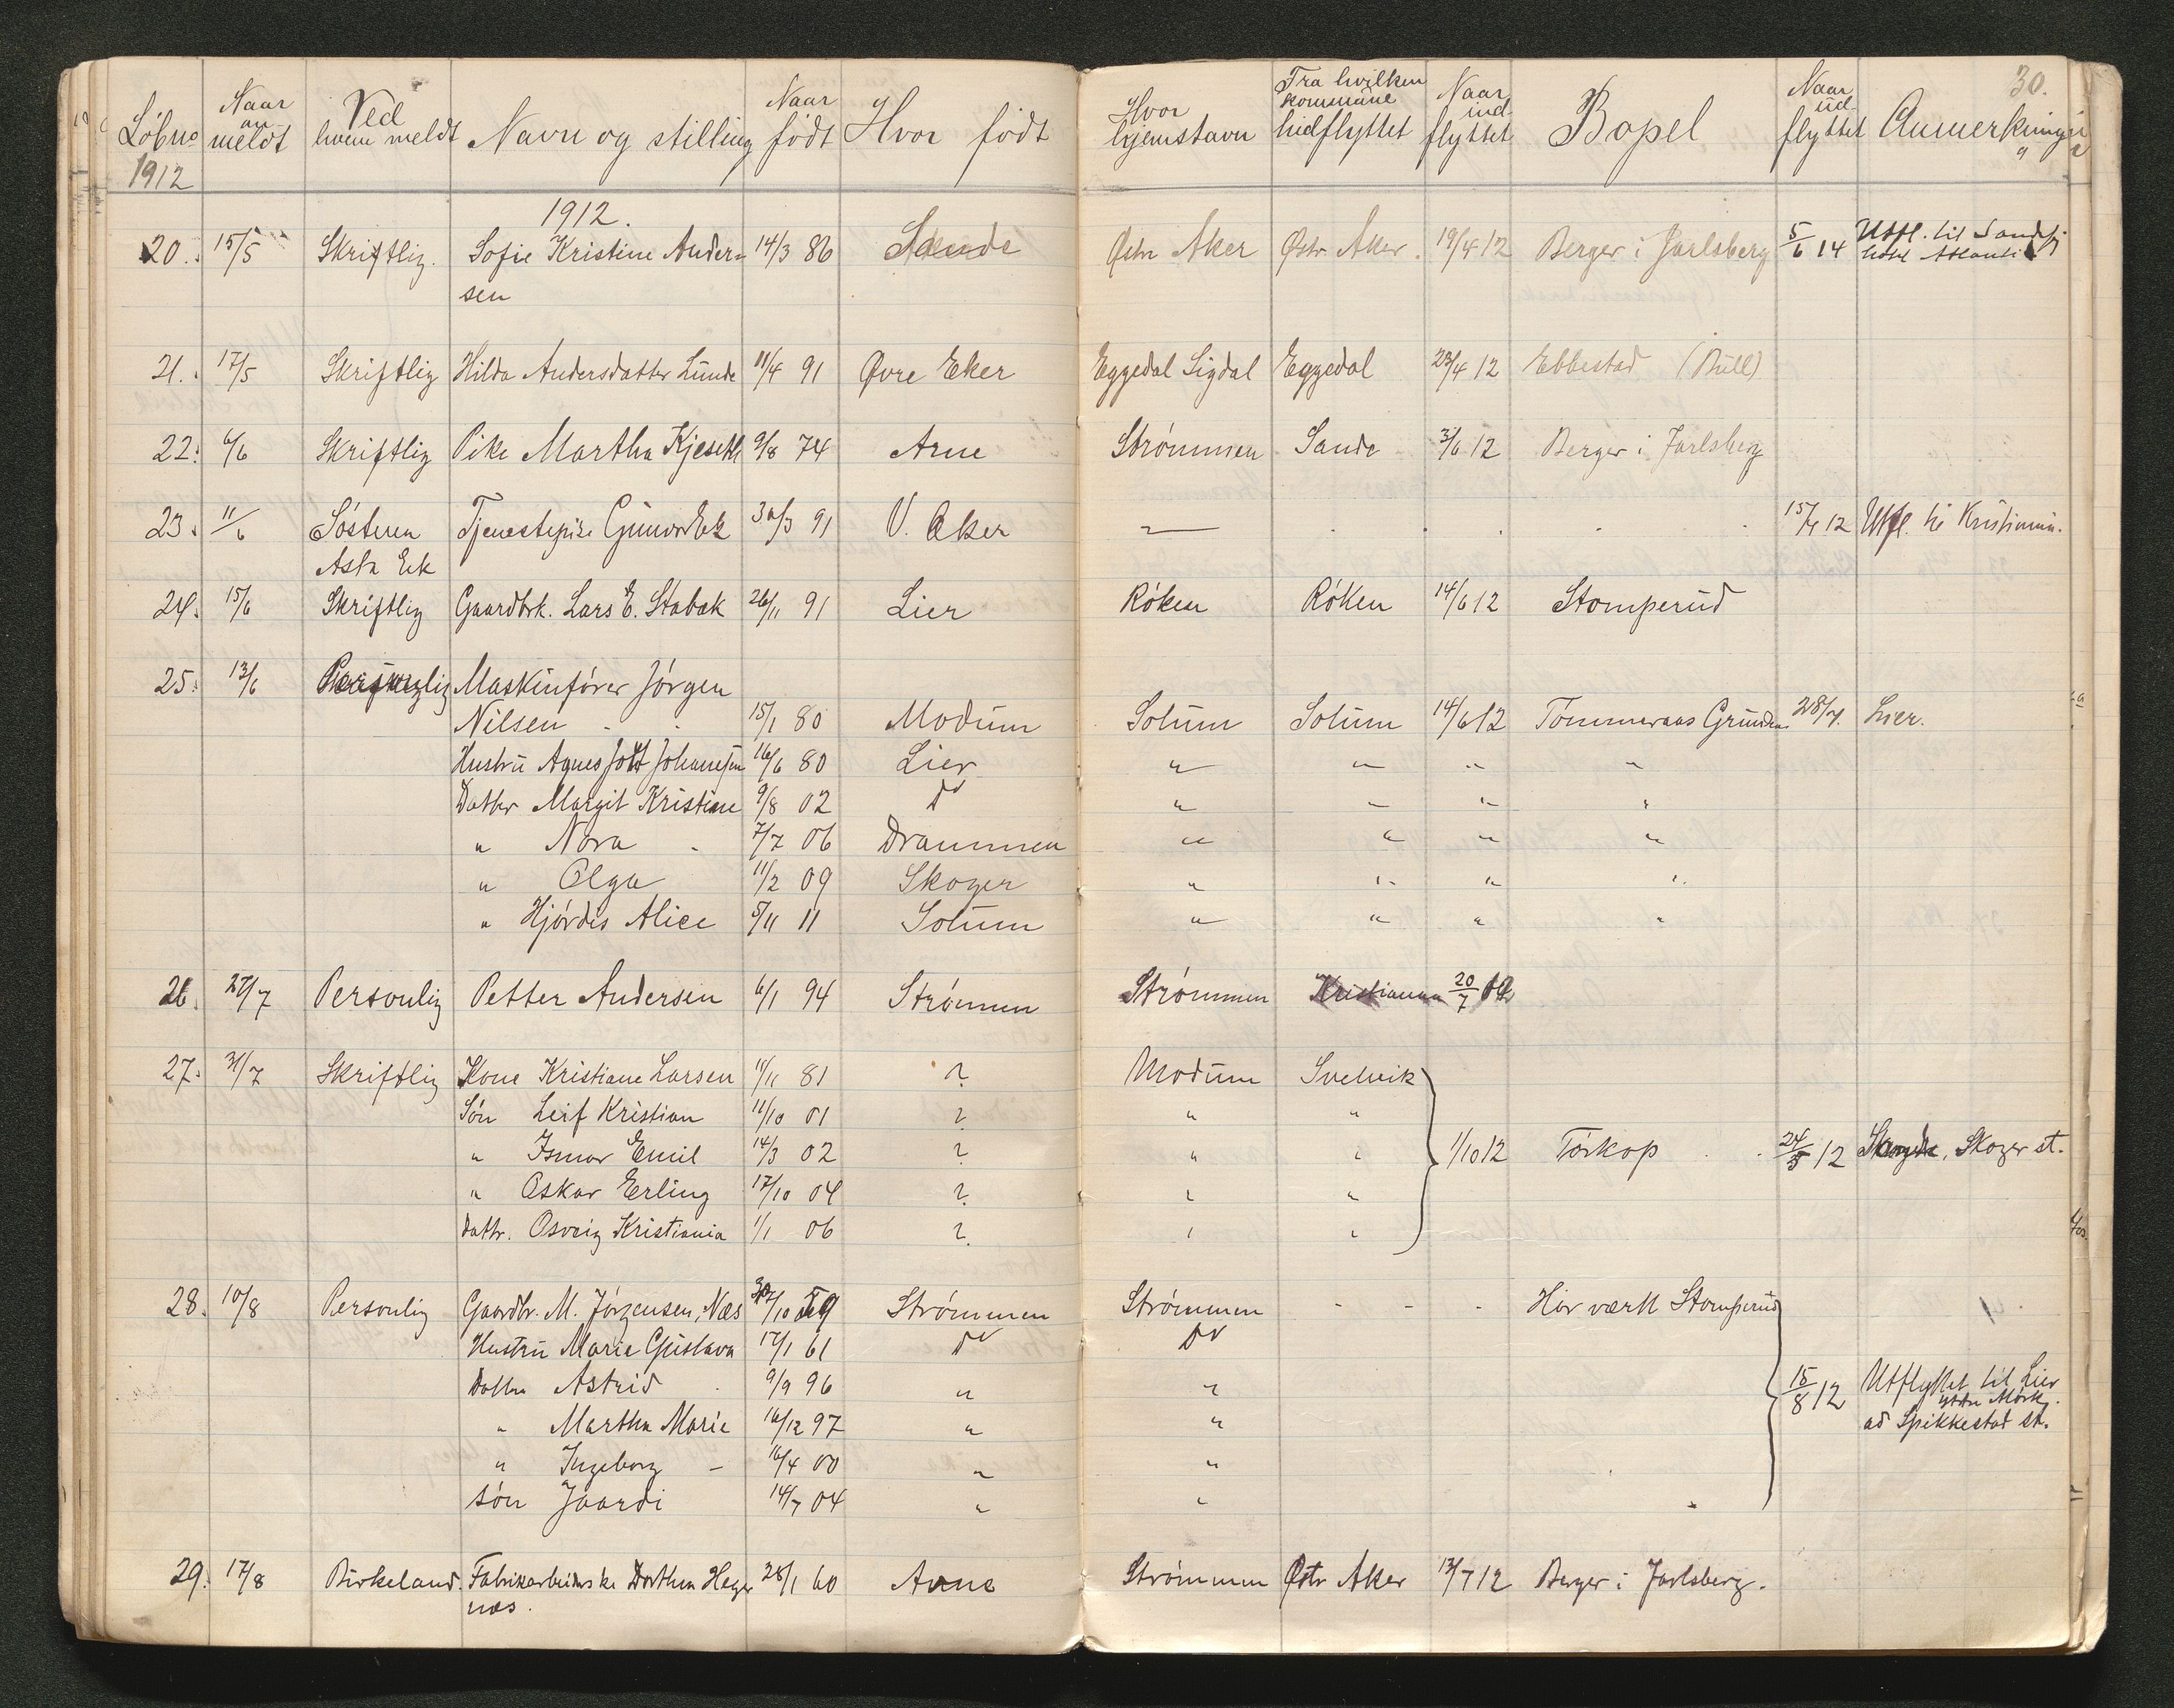 30.
Löbno Naar an meldt Ved hvem meldt Navn og stilling Naar født Hvor født Hvor hjemstavn Fra hvilken kommune hidflyttet Naar ind flyttet Bopel Naar ud flyttet Anmerkning
1912
1912.
20. 15/5 Skriftlig. Sofie Kristine Ander= 14/3 86 Sande Østr Aker Østr Aker. 19/4 12 Berger i Jarlsberg 5/6 14 Utfl. til
sen
21. 17/5 Skriftlig Hilda Andersdatter Lunde 11/4 91 Øvre Eker Eggedal Sigdal Eggedal 23/4 12 Ebbestad (Bull)
22. 6/6 Skriftlig Pike Martha Kjeseth 9/8 74 Arne Strømmen Sande 3/6 12 Berger i Jarlsberg
23. 11/6 Søsteren Tjenestepike Gunvor Eek 30/3 91 V. Aker " 15/7 12 Utfl. til Kristiania.
Asta Eek
24. 15/6 Skriftlig Gaardbrk. Lars E. Stabak 26/11 91 Lier Røken Røken 14/6 12 Stomperud
25. 13/6 Maskinfører Jørgen
Nilsen 15/1 80 Modum Solum Solum 14/6 12 Tømmeraas Grunden 28/7. Lier.
Hustru Agnes født Johannesen 16/6 80 Lier " " " "
Datter Margit Kristiane 9/8 02 do " " " "
" Nora 7/7 06 Drammen " " " "
" Olga 11/2 09 Skoger " " " "
" Hjørdis Alice 5/11 11 Solum " " " "
26. 27/7 Personlig Petter Andersen 6/1 94 Strømmen Strømmen Kristiania 20/7 12
27. 31/7 Skriftlig Kone Kristiane Larsen 11/11 81 ? Modum Svelvik
Søn Leif Kristian 11/10 01 ? " "
" Ismar Emil 14/3 02 ? " " 1/10 12 Tørkop 24/5 12 Skoger st.
" Oskar Erling 17/10 04 ? " "
Dattr. Osveig Kristiania 1/1 06 ? " "
28. 10/8 Personlig Gaardbr. M. Jørgensen, Næs 59 Strømmen Strømmen - - - Har vært Stomperud
Hustru Marie Gustava 17/1 61 do do
Datter Astrid 9/9 96 " " 15/8 12 Utflyttet til Lier
ytre Mørk.
" Martha Marie 16/12 97 " " ad Spikkestad st.
" Ingeborg - 16/4 00 " "
Søn Jaardi 14/7 04 " "
29. 17/8 Birkeland. Fabrikarbeiderske Dorthea Hege 28/1 60 Arne Strømmen Østr Aker 13/7 12 Berger i Jarlsberg.
næs.